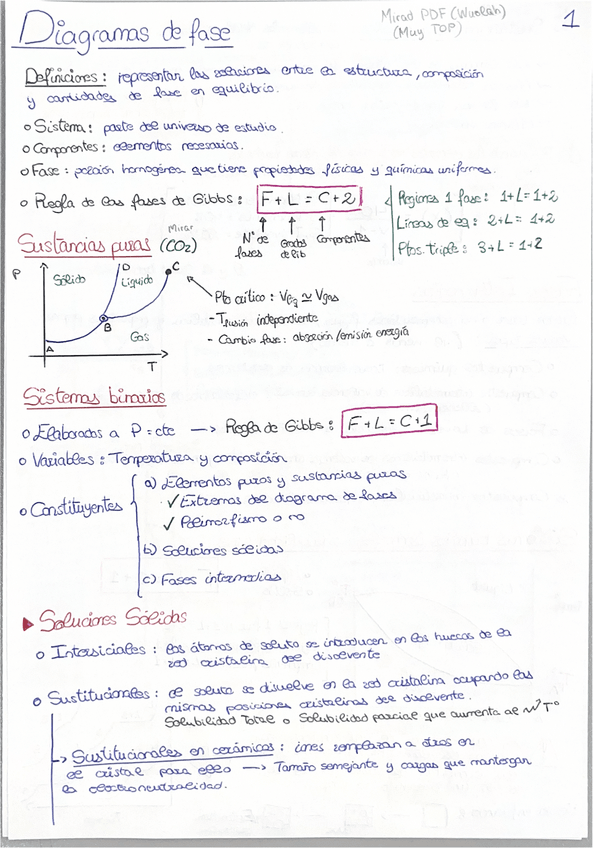 Mirad PDF (Wuolah)
(Muy TOP)
1
Diagramas de fase
Definiciones: representan las relaciones entre la estructura, composición
y cantidades de fase en equilibrio.
o Sistema: parte del universo de estudio.
o Componentes: elementos necesarios.
o Fase: porción homogénea que tiene propiedades físicas y químicas uniformes.
o Regla de las fases de Gibbs: F+L = C+2
Nº de fases
Grados de lib
Componentes
Regiones 1 fase: 1+L=1+2
Líneas de eq: 2+L=1+2
Ptos. triple: 3+L=1+2
Sustancias puras (CO2)
Mirar
P
Sólido
D
Líquido
C
B
A
Gas
T
Pto crítico: Vliq ≃ Vgas
- Tfusión independiente
- Cambio fase: absorción/emisión energía
Sistemas binarios
o Elaborados a P=cte → Regla de Gibbs: F+L = C+1
o Variables: Temperatura y composición
o Constituyentes
a) Elementos puros y sustancias puras
✓ Extremos del diagrama de fases
✓ Polimorfismo o no
b) Soluciones sólidas
c) Fases intermedias
▶ Soluciones Sólidas
o Intersiciales: los átomos de soluto se introducen en los huecos de la
red cristalina del disolvente
o Sustitucionales: el soluto se disuelve en la red cristalina ocupando las
mismas posiciones cristalinas del disolvente.
Solubilidad Total o Solubilidad parcial que aumenta al Tº
→ Sustitucionales en cerámicos: iones remplazan a otros en
el cristal para ello → Tamaño semejante y cargas que mantengan
la electroneutralidad.